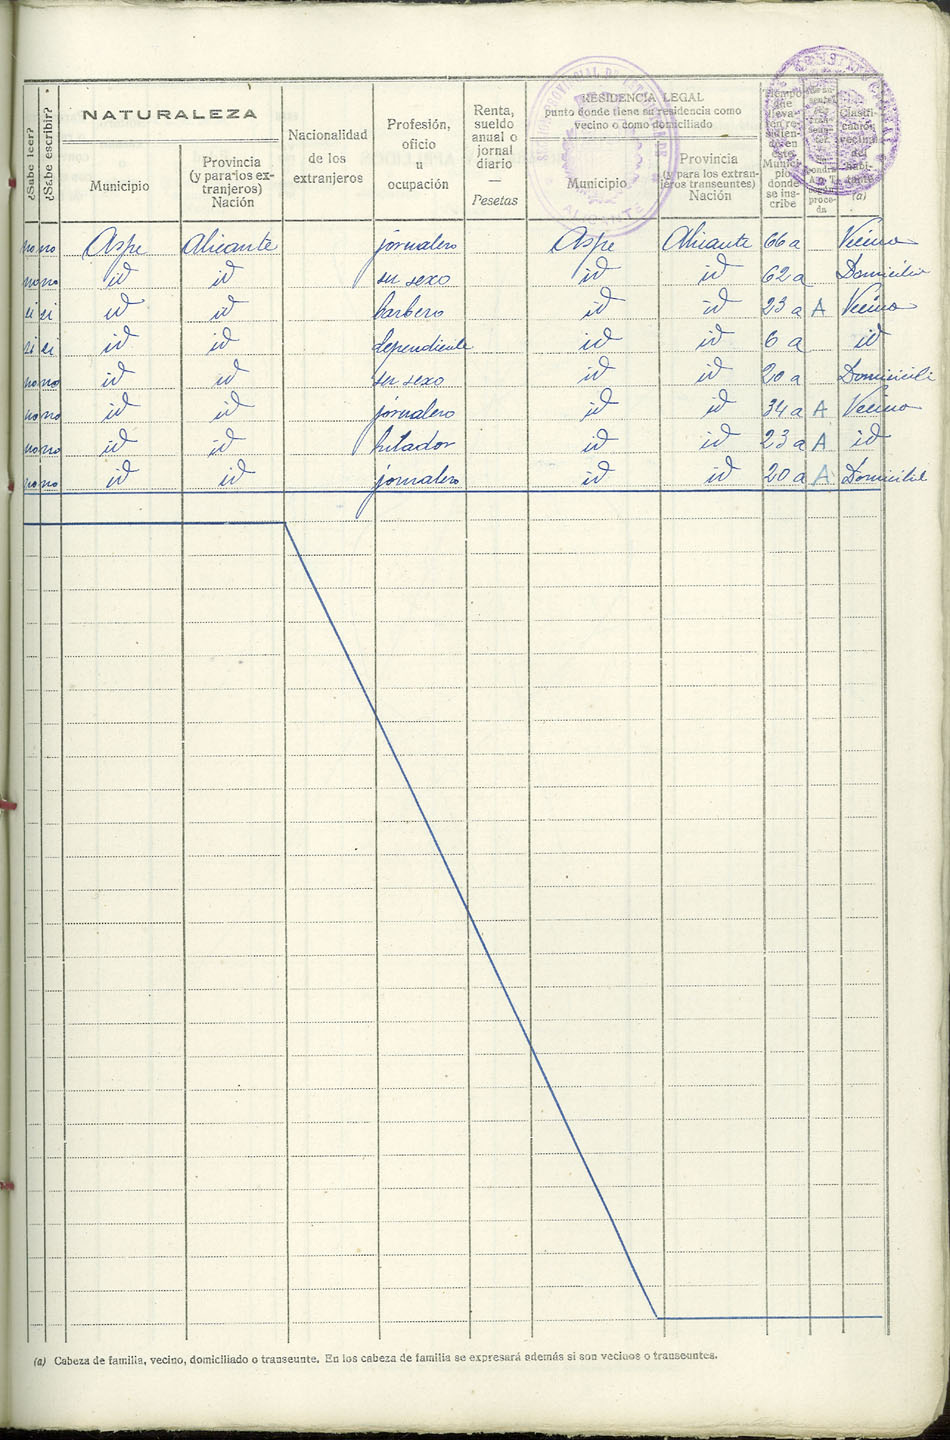 ¿Sabe leer?
¿Sabe escribir?
NATURALEZA
Municipio
Provincia
(y para los ex-
tranjeros)
Nación
Nacionalidad
de los
extranjeros
Profesión,
oficio
u
ocupación
Renta,
sueldo
anual o
jornal
diario
—
Pesetas
RESIDENCIA LEGAL
punto donde tiene su residencia como
vecino o como domiciliado
Municipio
Provincia
(y para los extran-
jeros transeuntes)
Nación
Munici-
pio
donde
se ins-
cribe
proce-
da
(a)
ALICANTE
no no Aspe Alicante jornalero Aspe Alicante 66 a Vecino
no no id id su sexo id id 62 a Domicilio
si si id id barbero id id 23 a A Vecino
si si id id dependiente id id 6 a id
no no id id su sexo id id 20 a Domicili
no no id id jornalero id id 34 a A Vecino
no no id id hilador id id 23 a A id
no no id id jornalero id id 20 a A Domicilil
(a) Cabeza de familia, vecino, domiciliado o transeunte. En los cabeza de familia se expresará además si son vecinos o transeuntes.